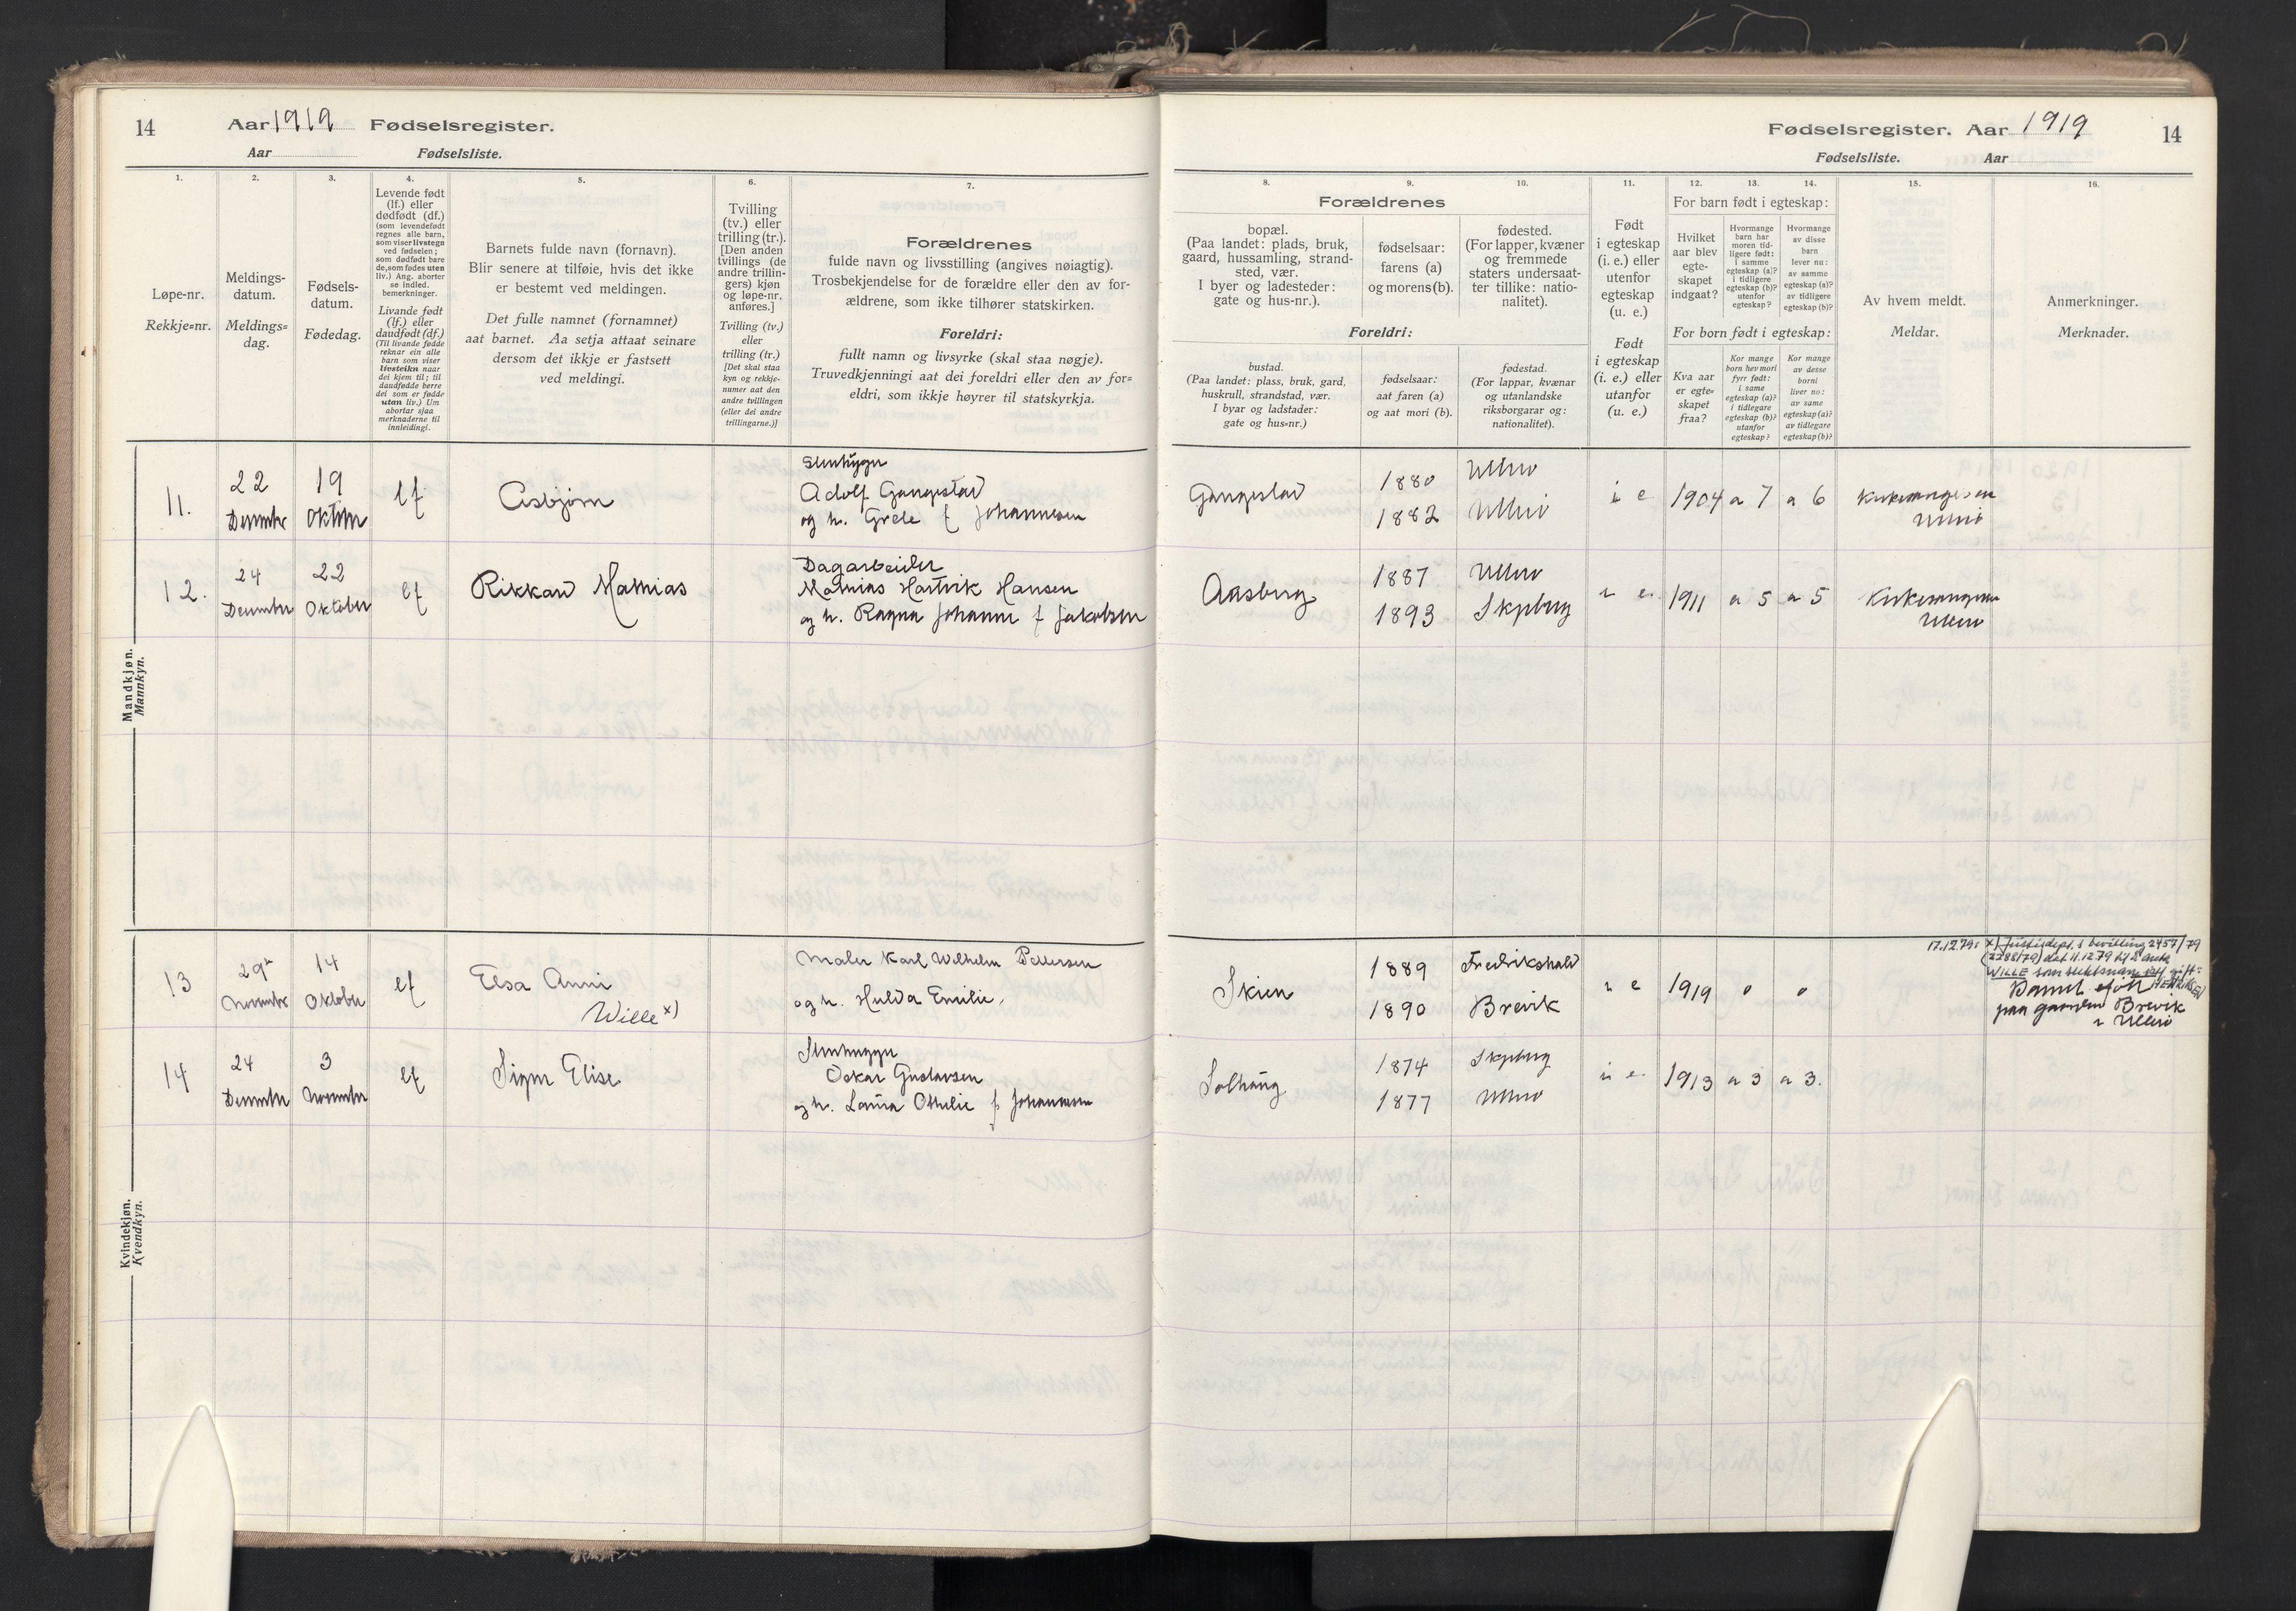 14
Aar 1919 Fødselsregister.
Aar Fødselsliste.
1.
2.
3.
4.
5.
6.
7.
Løpe-nr.
Rekkje=nr.
Meldings-
datum.
Meldings=
dag.
Fødsels-
datum.
Fødedag.
Levende født
(lf.) eller
dødfødt (df.)
(som levendefødt
regnes alle barn,
som viser livstegn
ved fødselen;
som dødfødt bare
de, som fødes uten
liv.) Ang. aborter
se indled.
bemerkninger.
Livande født
(lf.) eller
daudfødt (df.)
(Til livande fødde
reknar ein alle
barn som viser
livsteikn naar
dei kjem til; til
daudfødde berre
dei som er fødde
utan liv.) Um
abortar sjaa
merknaderne til
innleidingi.
Barnets fulde navn (fornavn).
Blir senere at tilføie, hvis det ikke
er bestemt ved meldingen.
Det fulle namnet (fornamnet)
aat barnet. Aa setja attaat seinare
dersom det ikkje er fastsett
ved meldingi.
Tvilling
(tv.) eller
trilling (tr.).
[Den anden
tvillings (de
andre trillin-
gers) kjøn
og løpe-nr.
anføres.]
Tvilling (tv.)
eller
trilling (tr.)
[Det skal staa
kyn og rekkje-
numer aat den
andre tvillingen
(eller dei andre
trillingarne.)]
Forældrenes
fulde navn og livsstilling (angives nøiagtig).
Trosbekjendelse for de forældre eller den av for-
ældrene, som ikke tilhører statskirken.
Foreldri:
fullt namn og livsyrke (skal staa nøgje).
Truvedkjenningi aat dei foreldri eller den av for=
eldri, som ikkje høyrer til statskyrkja.
Mandkjøn.
Mannkyn.
11.
22
Desember
19
Oktober
lf
Asbjørn
Stenhugger
Adolf Gangestad
og h. Grete f Johannesen
12.
24
Desember
22
Oktober
lf
Rikkard Mathias
Dagarbeider
Mathias Hartvik Hansen
og h. Ragna Johanne f Jakobsen
Kvindekjøn.
Kvendkyn.
13
29
November
14
Oktober
lf
Elsa Anni
Wille x)
Maler Karl Wilhelm Pettersen
og h. Hulda Emilie,
14
24
Desember
3
November
lf
Signe Elise
Stenhugger
Oskar Gustavsen
og h. Laura Othelie f Johannesen
Fødselsregister. Aar 1919
14
Fødselsliste. Aar
8.
9.
10.
11.
12.
13.
14.
15.
16.
Forældrenes
bopæl.
(Paa landet: plads, bruk,
gaard, hussamling, strand-
sted, vær.
I byer og ladesteder:
gate og hus-nr.).
fødselsaar:
farens (a)
og morens (b).
fødested.
(For lapper, kvæner
og fremmede
staters undersaat-
ter tillike: natio-
nalitet).
Foreldri:
bustad.
(Paa landet: plass, bruk, gard,
huskrull, strandstad, vær.
I byar og ladstader:
gate og hus=nr.)
fødselsaar:
aat faren (a)
og aat mori (b).
fødestad.
(For lappar, kvænar
og utanlandske
riksborgarar og:
nationalitet).
Født
i egteskap
(i. e.) eller
utenfor
egteskap
(u. e.)
Født
i egteskap
(i. e.) eller
utanfor
(u. e.)
For barn født i egteskap:
Hvilket
aar blev
egte-
skapet
indgaat?
Hvormange
barn har
moren tid-
ligere født:
i samme
egteskap (a)?
i tidligere
egteskap (b)?
utenfor
egteskap?
Hvormange
av disse
barn
lever nu:
av samme
egteskap (a)?
av tidligere
egteskap (b)?
For born født i egteskap:
Kva aar
er egte-
skapet
fraa?
Kor mange
born hev mori
fyrr født:
i same
egteskap (a)?
i tidlegare
egteskap (b)?
utanfor
egteskap?
Kor mange
av desse
borni
liver no:
av same
egteskap (a)?
av tidlegare
egteskap (b)?
Av hvem meldt.
Meldar.
Anmerkninger.
Merknader.
Gangestad
1880
1882
Ullerø
Ullerø
i e
1904
a 7
a 6
Kirkesangeren
Ullerø
Aasberg
1887
1893
Ullerø
Skjeberg
i e.
1911
a 5
a 5
Kirkesangeren
Ullerø
Skien
1889
1890
Fredrikshald
Brevik
i e
1919
0
0
17.12.79: x) Justisdept.s bevilling 2457/79
(2288/79) det 11.12.79 til å anta
WILLE som slektsnavn, gift:
HENRIKSEN
Barnet født
paa gaarden Brevik
i Ullerø
Solhaug
1874
1877
Skjeberg
Ullerø
i e.
1913
a 3
a 3.